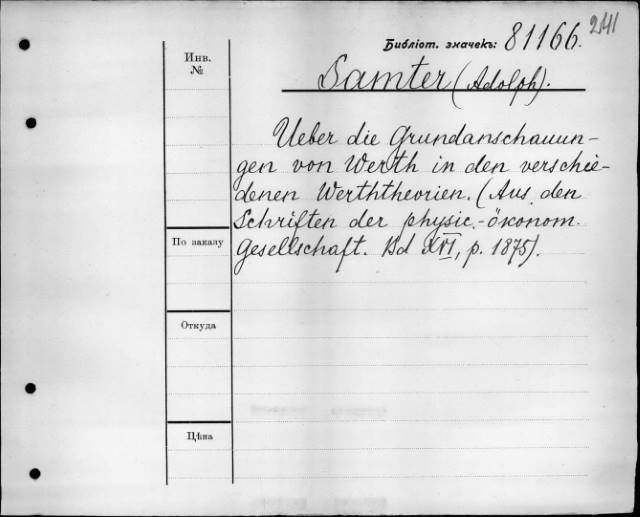 241
Библіот. значекъ: 81166.
Инв.
№
Samter (Adolph).
Ueber die Grundanschauun-
gen von Werth in den verschie-
denen Werththeorien. (Aus den
Schriften der physic.-ökonom.
Gesellschaft. Bd XVI, p. 1875).
По заказу
Откуда
Цѣна